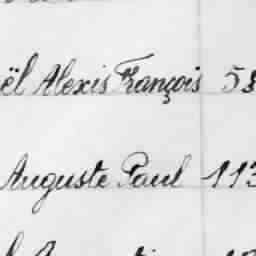 ël Alexis François 58
Auguste Paul 113